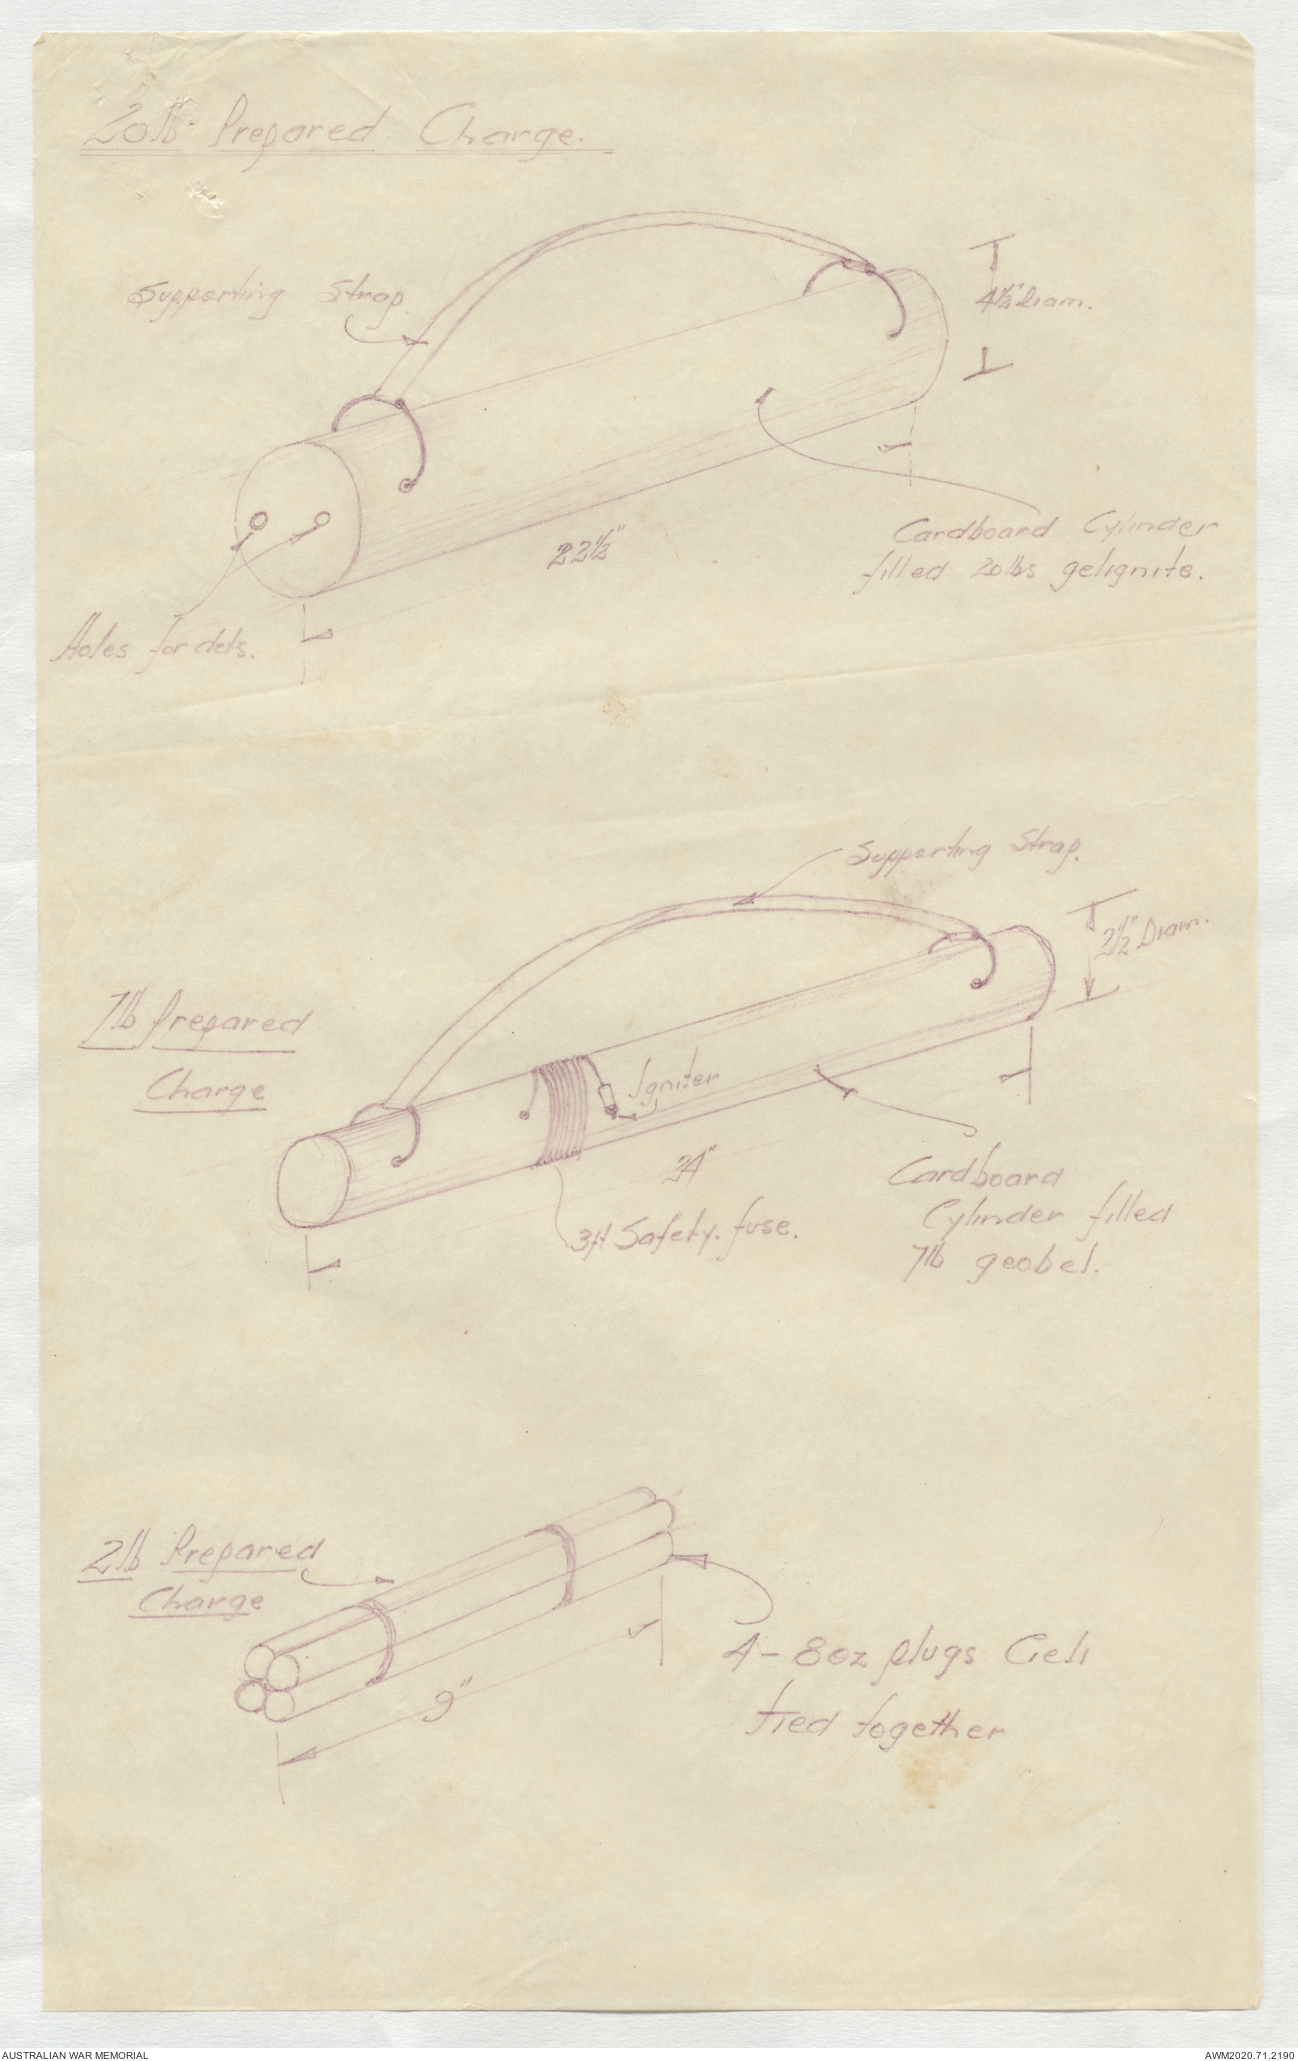 20lb Prepared Charge.
Supporting Strap.
4½" Diam.
22½"
Cardboard Cylinder
filled 20lbs gelignite.
Holes for dets.
Supporting Strap.
2½" Diam.
7lb Prepared
Charge
Igniter
24"
3ft Safety. fuse.
Cardboard
Cylinder filled
7lb geobel.
2lb Prepared
Charge
9"
4 - 8oz plugs Geli
tied together
AUSTRALIAN WAR MEMORIAL
AWM2020.71.2190